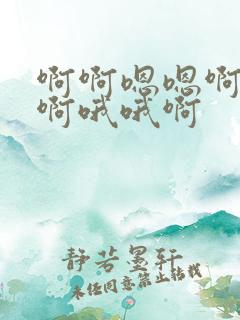 啊啊嗯嗯啊
啊哦哦啊
静若墨轩
未经同意禁止转载